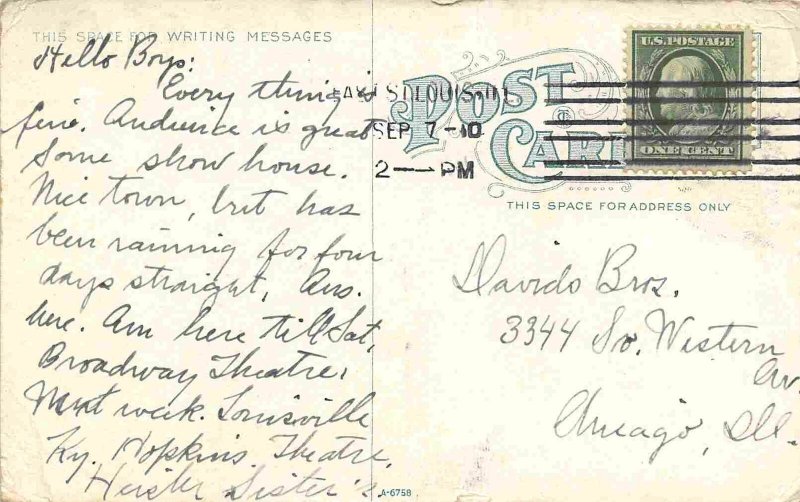 THIS SPACE FOR WRITING MESSAGES
Hello Boys:
Every thing is
fine. Audience is great
Some show house.
Nice town, but has
been raining for four
days straight, Ans.
here. Am here till Sat,
Broadway Theatre,
Next week. Louisville
Ky. Hopkins Theatre,
Sister's
POST
CARD
EAST ST LOUIS, ILL
SEP 7-10
2 — PM
U.S. POSTAGE
ONE CENT
THIS SPACE FOR ADDRESS ONLY
Davids Bros.
3344 So. Western
Av.
Chicago, Ill.
A-6758